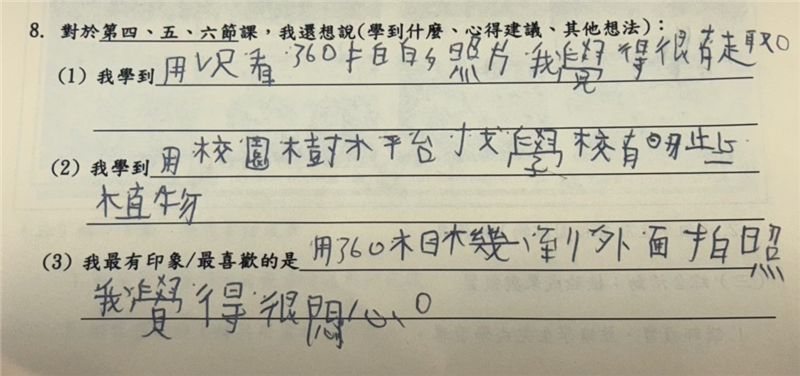 8. 對於第四、五、六節課，我還想說(學到什麼、心得建議、其他想法)：
(1) 我學到 用VR看360拍的照片 我覺得很有趣。
(2) 我學到 用校園樹木平台找學校有哪些
植物
(3) 我最有印象/最喜歡的是 用360相機到外面拍照
我覺得很開心。